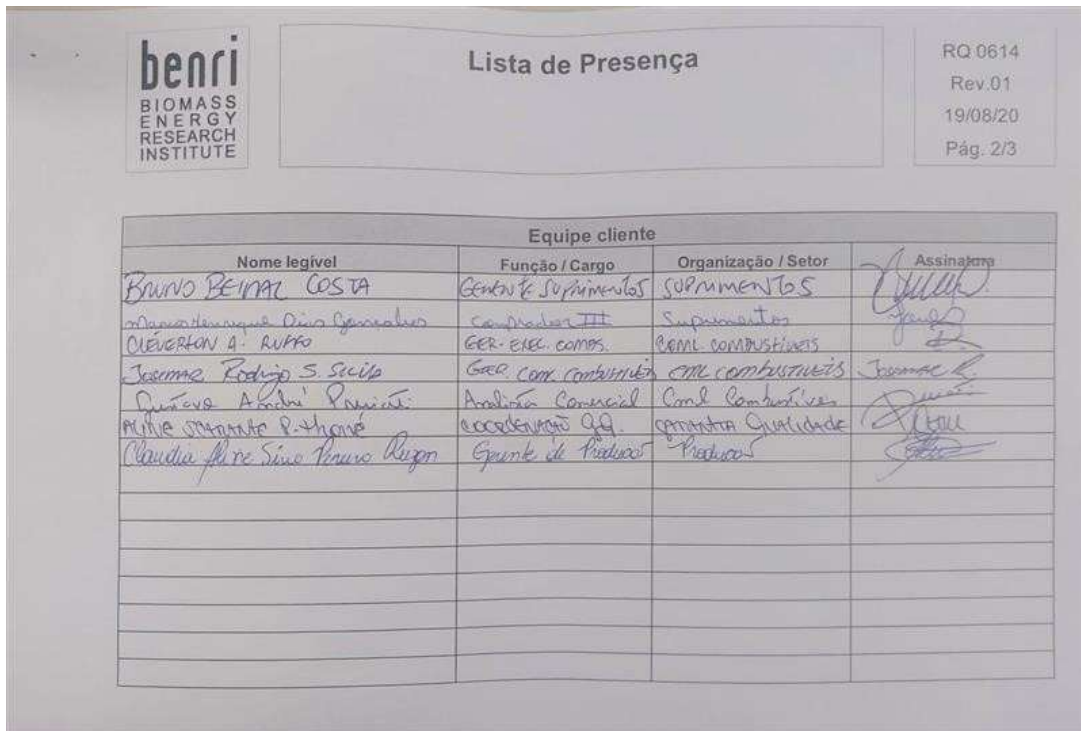 benri
BIOMASS
ENERGY
RESEARCH
INSTITUTE
Lista de Presença
RQ 0614
Rev.01
19/08/20
Pág. 2/3
Equipe cliente
Nome legível Função / Cargo Organização / Setor Assinatura
BRUNO COSTA GERENTE SUPRIMENTOS SUPRIMENTOS
Marcos Henrique Dias Gonçalves Comprador III Suprimentos
CLEVERSON A. RUFFO GER. EXEC. COMB. COML. COMBUSTIVEIS
Josemar Rodrigo S. GER. COM. COMBUSTIVEIS CML COMBUSTIVEIS Josemar R.
Gustavo André Analista Comercial Coml Combustíveis
ALINE P. Thomé COORDENAÇÃO GQ. GARANTIA QUALIDADE
Claudia Aline Gerente de Producao Producao